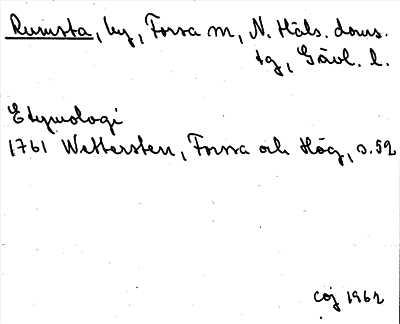 Rumsta, by, Forsa sn, N. Häls. doms.
tg, Gävl. l.
Etymologi
1761 Wettersten, Forsa och Hög, s. 52
coj 1962